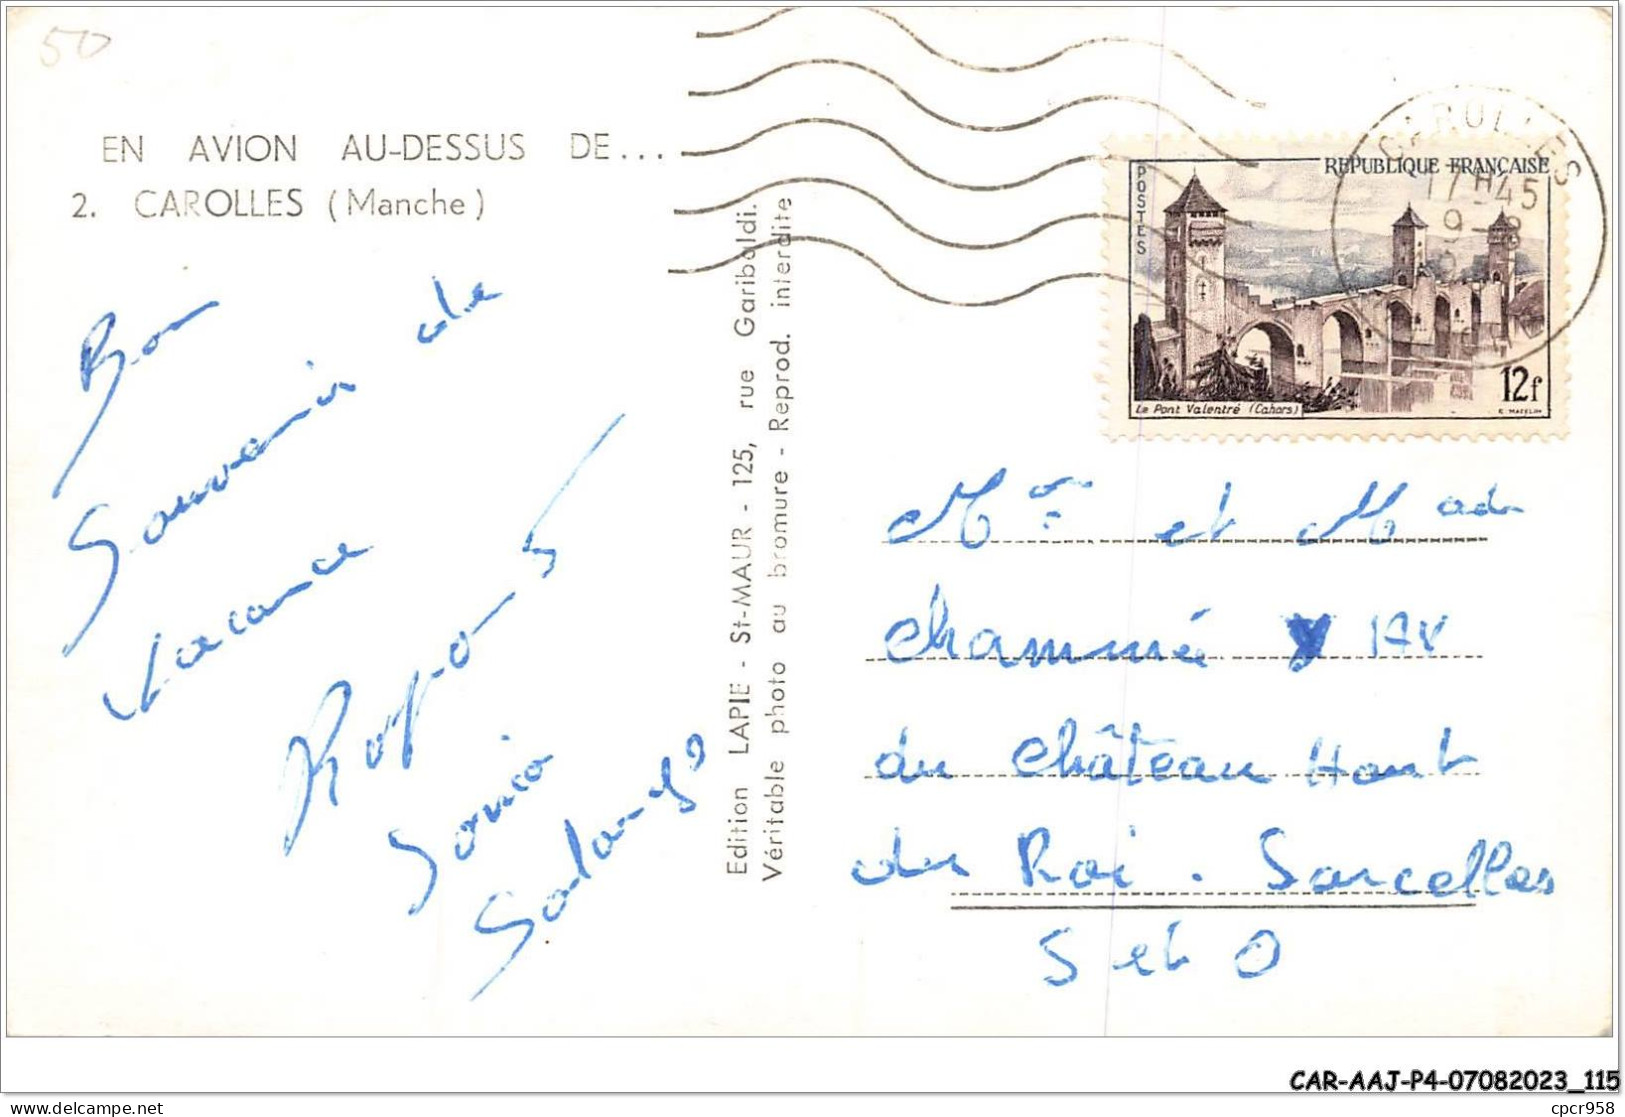 50
EN AVION AU-DESSUS DE...
2. CAROLLES (Manche)
Bon
Souvenir de
Vacance
Sonia
Solange
Edition LAPIE - St-MAUR - 125, rue Garibaldi.
Véritable photo au bromure - Reprod. interdite
CAROLLES
17H45
9-8
POSTES
REPUBLIQUE FRANÇAISE
Le Pont Valentré (Cahors)
12f
Mr et Mad
Chammié
du Château Haut
du Roi . Sarcelles
S et O
CAR-AAJ-P4-07082023_115
delcampe.net
cpcr958